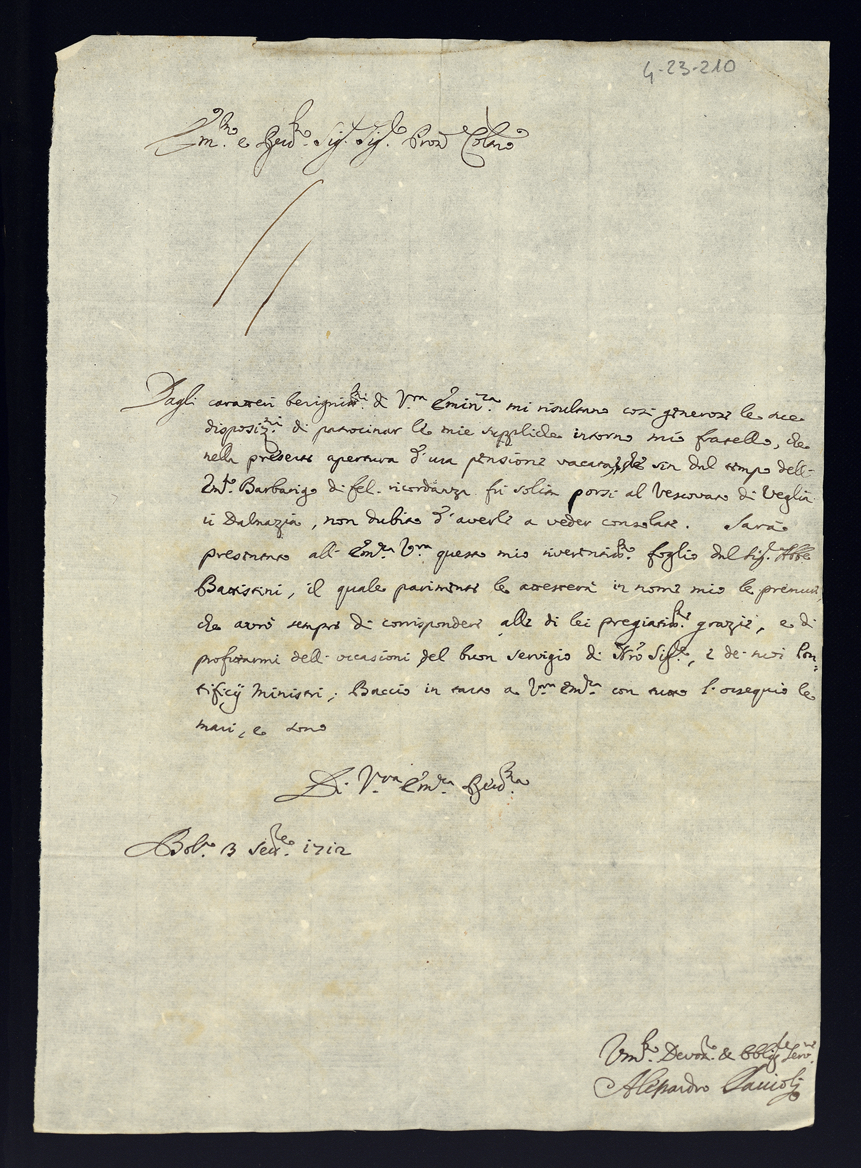 4-23-210
Em.mo e Rev.mo Sig.r Sig.r Pron Col.mo
Dagli caratteri benigniss.mi di V.ra Emin.za mi risultano così generose le sue
disposiz.ni di patrocinar le mie suppliche intorno mio fratello, che
nella presente apertura d'una pensione vacata sin dal tempo dell'
Em.o Barbarigo di fel. ricordanza fù solita porsi al Vescovato di Veglia
in Dalmazia, non dubito d'averle a veder consolate. Sarà
presentato all' Em.za V.ra questo mio riveritiss.mo foglio dal Sig.r Abbe
Battistini, il quale parimente le attesterà in nome mio le premure,
che avrò sempre di corrispondere alle di lei pregiatiss.me grazie, e di
profittarmi dell' occasioni del buon servigio di N.ro Sig.re, e de suoi Pon-
tificij Ministri; Baccio in tanto a V.ra Em.za con tutto l'ossequio le
mani, e sono
Di V.ra Em.za Rev.ma
Bol.a 3 Sett.re 1712
Um.mo Devot.mo & Obblig.mo Serv.re
Alessandro